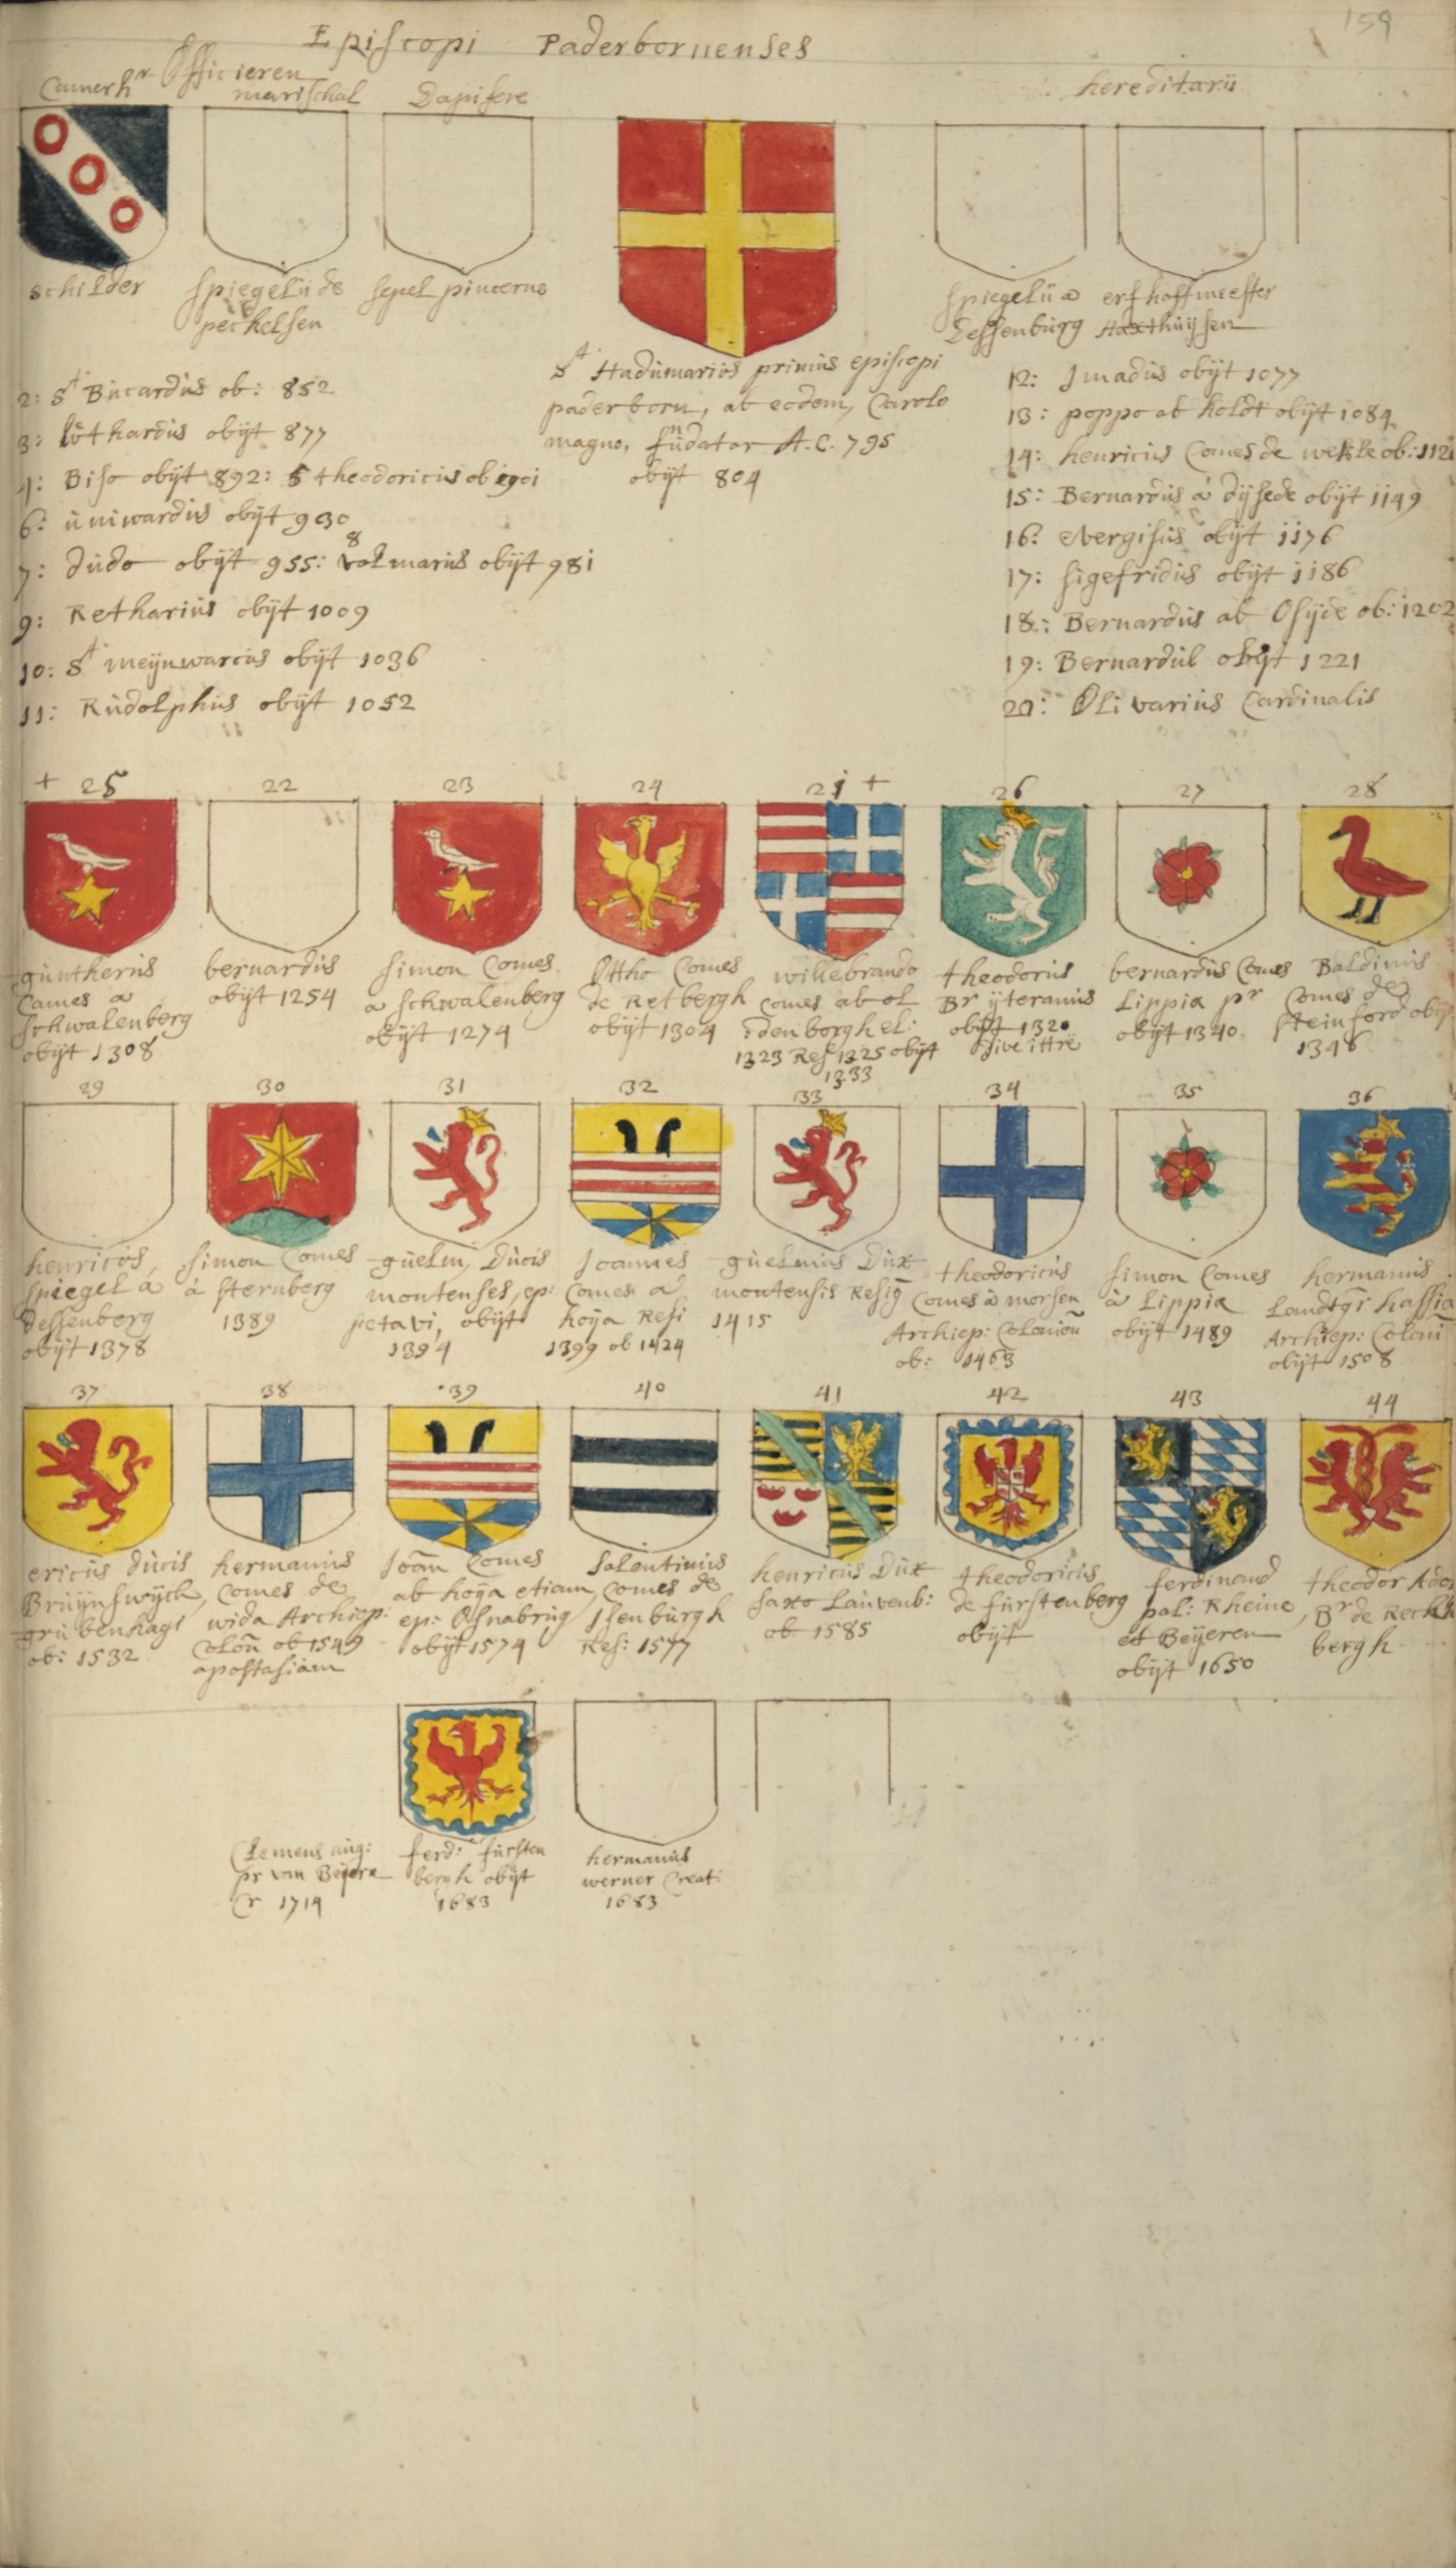 159
Episcopi Paderbornenses
Officieren
Camerhr marischal Dapifere
hereditarii
schilder
spiegelii de
peckelsen
sepel pincerne
spiegelii a
Dessenburg
erfhoffmeester
Haxthuÿsen
St Hadumarios primus episcopi
paderborn, ab eodem, Carolo
magno, fundator A.C. 795
obÿt 804
2: St Bucardus ob: 852
3: luthardus obÿt 877
4: Biso obÿt 892: 5 theodoricus ob 901
6: uniwardus obÿt 930
7: dudo obÿt 955: 8 volmarus obÿt 981
9: Retharius obÿt 1009
10: St meÿnwarcus obÿt 1036
11: Rudolphus obÿt 1052
12: Imadus obÿt 1077
13: poppo ab holdt obÿt 1084
14: henricus Comes de werle ob: 112
15: Bernardus a dÿsede obÿt 1149
16: Evergisus obÿt 1176
17: sigefridus obÿt 1186
18: Bernardus ab Osÿde ob: 1202
19: Bernardus obÿt 1221
20: Olivarius Cardinalis
+ 25 22 23 24 21 + 26 27 28
guntherus
Comes a
schwalenberg
obÿt 1308
bernardus
obÿt 1254
simon Comes
a schwalenberg
obÿt 1274
Ottho Comes
de Retbergh
obÿt 1304
willebrando
comes ab ol
denborgh el:
1323 Res 1325 obÿt
1333
theodorus
Br ÿteranus
obÿt 1320
sive ittre
bernardus Comes
Lippia pr
obÿt 1340
Baldinus
Comes de
steinford obÿt
1348
29 30 31 32 33 34 35 36
henricus
spiegel a
dessenberg
obÿt 1378
simon Comes
à sternberg
1389
guelm, Ducis
montenses, ep:
petavi, obÿt
1394
Joannes
Comes a
hoÿa Resi
1399 ob 1424
guelmus Dux
montensis Resig
1415
theodoricus
Comes à morsen
Archiep: Colonien
ob: 1463
simon Comes
à Lippia
obÿt 1489
hermanus
Landtgr hassia
Archiep: Coloni
obÿt 1508
37 38 39 40 41 42 43 44
ericus ducis
Bruÿnswÿck,
grubenhagt
ob: 1532
hermanus
Comes de
wida Archiep:
Colon ob 1549
apostasiam
Joan Comes
ab hoÿa etiam
ep: Osnabrug
obÿt 1574
Salentinus
Comes de
Isenburgh
Res: 1577
henricus Dux
saxo Lauvenb:
ob 1585
theodoricus
de furstenberg
obÿt
ferdinand
pal: Rheine,
et Beÿeren
obÿt 1650
theodor Adol
Br de Reckh
bergh
Clemens aug:
pr van Beÿere
Cr 1714
ferd: fursten
bergh obÿt
1683
hermanus
werner Creat:
1683